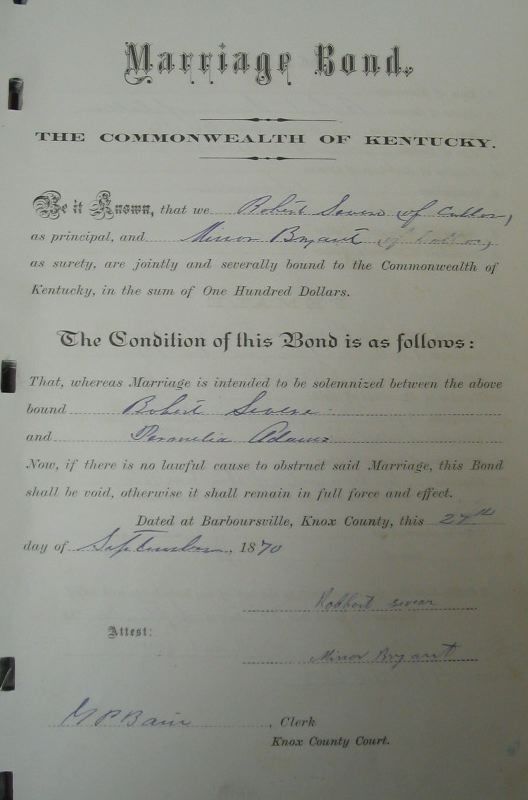 Marriage Bond.
THE COMMONWEALTH OF KENTUCKY.
Be it Known, that we Robert Severe (of Color)
as principal, and Minor Bryant
as surety, are jointly and severally bound to the Commonwealth of
Kentucky, in the sum of One Hundred Dollars.
The Condition of this Bond is as follows:
That, whereas Marriage is intended to be solemnized between the above
bound Robert Severe
and Adams
Now, if there is no lawful cause to obstruct said Marriage, this Bond
shall be void, otherwise it shall remain in full force and effect.
Dated at Barboursville, Knox County, this 27th
day of September, 1870
Robbert sevear
Attest:
Minor Bryant
Bain, Clerk
Knox County Court.